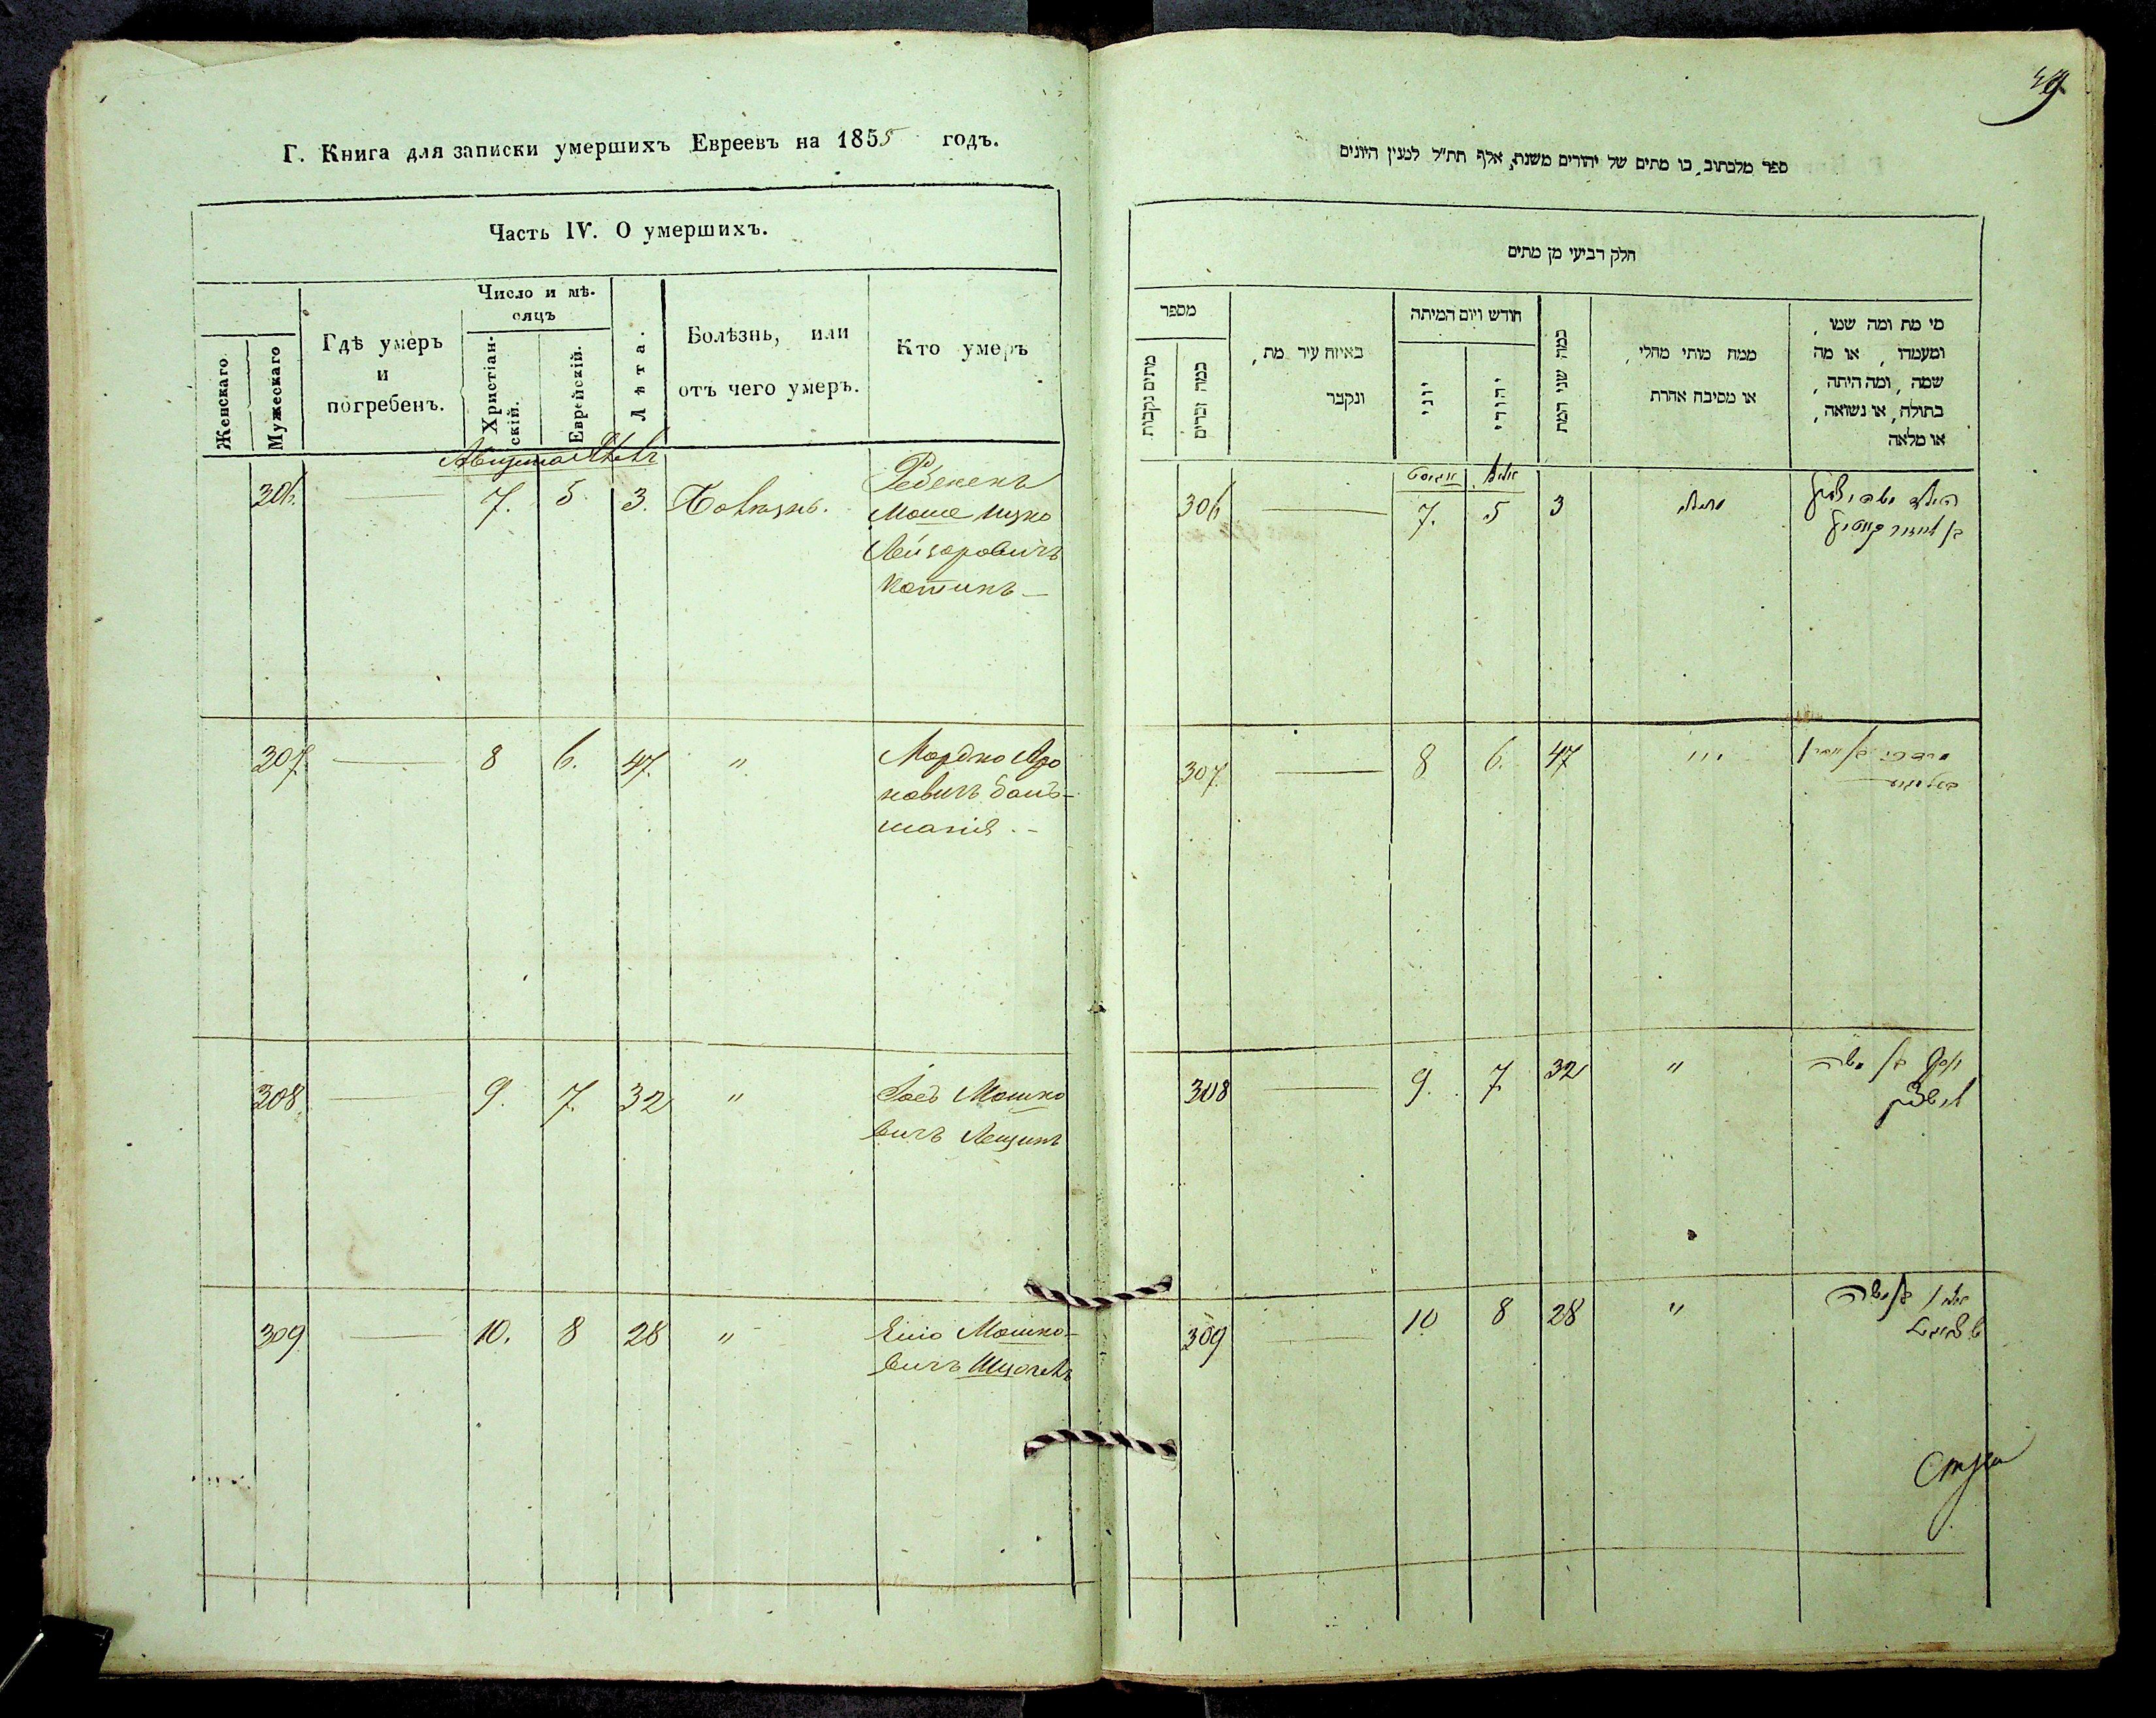 Г. Книга для записки умершихъ Евреевъ на 1855 годъ.
Часть IV. О умершихъ.
Женскаго
Мужескаго
Гдѣ умеръ
и
погребенъ.
Число и мѣ-
сяцъ
Христіан-
скій.
Еврейскій.
Лѣта.
Болѣзнь, или
отъ чего умеръ.
Кто умеръ
Августа
306. — 7. 5 3. Болѣзнь. Ребенекъ
Моше Ицко
Лейзаровичъ
Котикъ —
307. — 8 6. 47. " Мордко Аро
новичъ
308. — 9. 7. 32 " Іосъ Мошко
вичъ Лещинъ
309 — 10. 8 28 " Мошко-
вичъ
49
ספר מלכתוב, בו מתים של יהודים משנת, אלף תת״ל למנין היונים
חלק רביעי מן מתים
מספר
מתים נקבות
כמה זכרים
באיזה עיר מת,
ונקבר
חודש ויום המיתה
יוני
יהודי
כמה שני המת
ממה מותי מחלי,
או מסיבה אחרת
מי מת ומה שמו,
ומעמדו, או מה
שמה, ומה היתה,
בתולה, או נשואה,
או מלאה
אוגוסט
306 — 7. 5 3
307. — 8 6. 47 ,,, מרדכי בן אהרן
308 — 9. 7 32 " יוסף בן משה
309 — 10 8 28 " בן משה